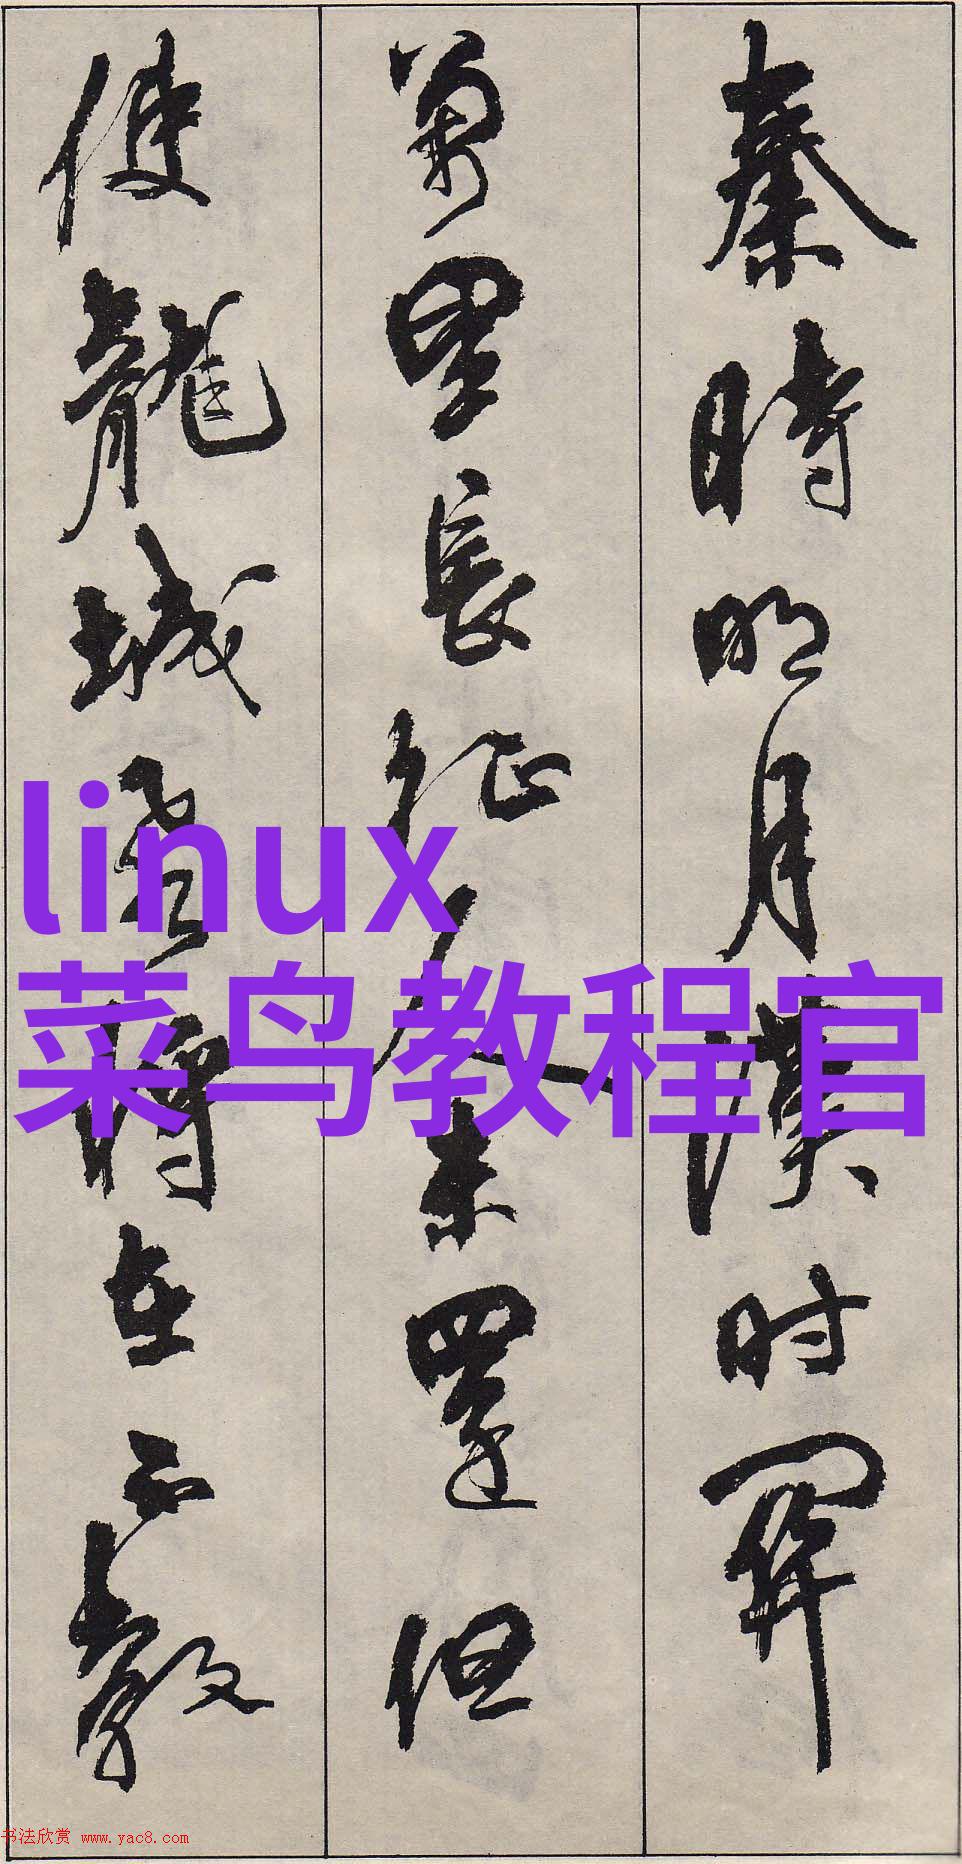 秦時明月漢时關
萬里長征人未還但
使龍城飛將在不教
linux
菜鸟教程官
书法欣赏 www.yac8.com